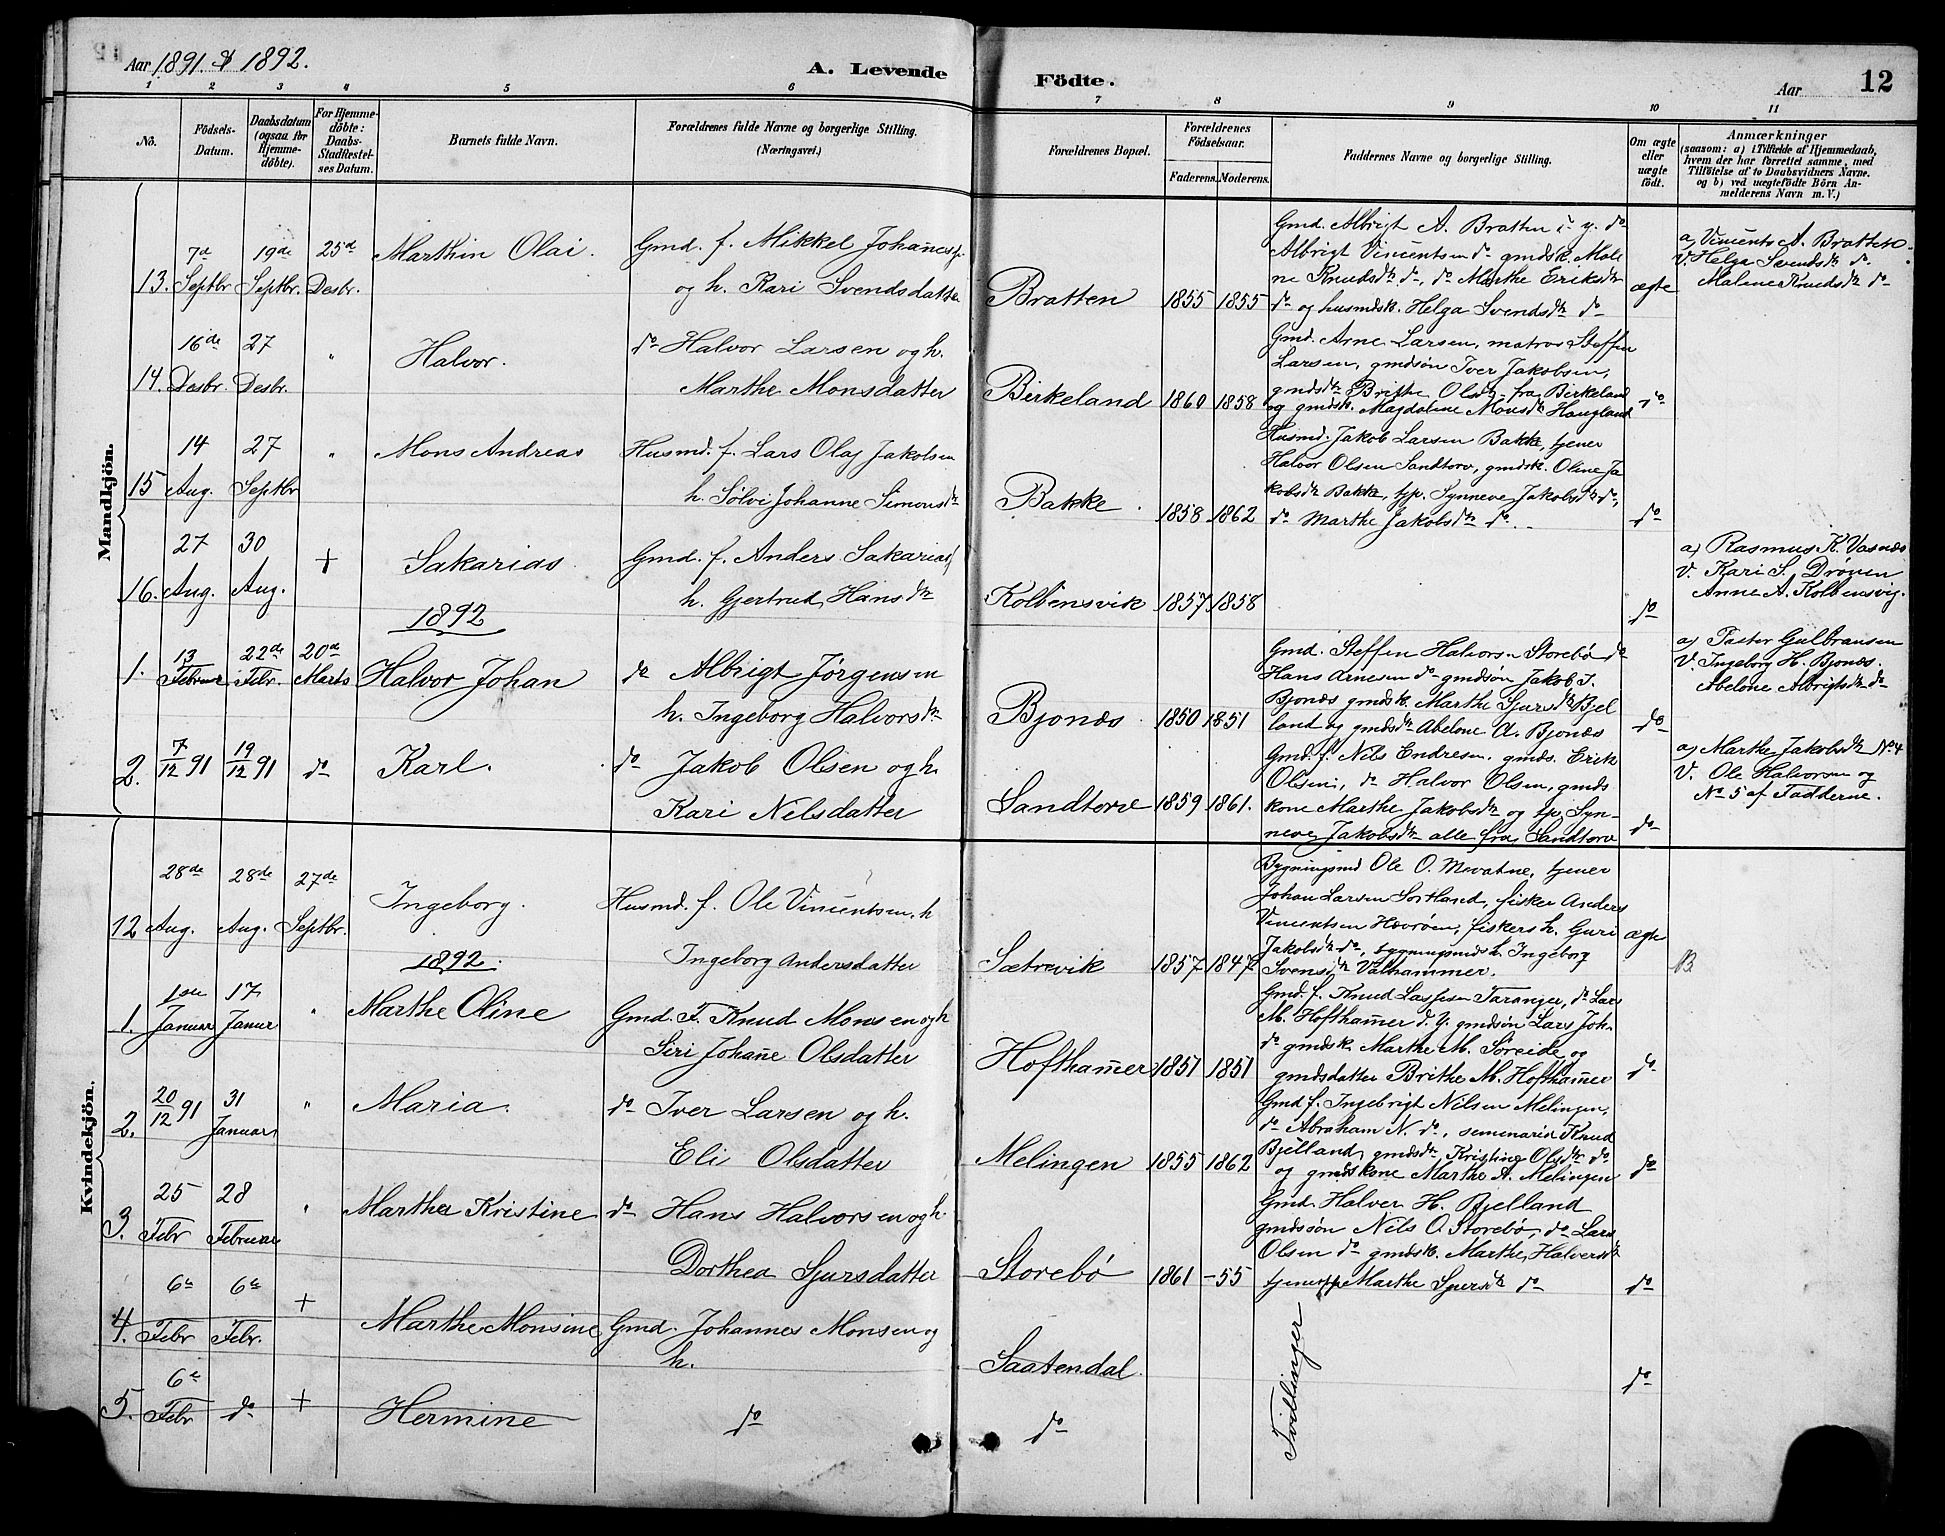 Aar 1891. & 1892.
A. Levende Födte.
Aar 12
1 2 3 4 5 6 7 8 9 10 11
No.
Födsels-Datum.
Daabsdatum (ogsaa for Hjemme-döbte).
For Hjemme-döbte: Daabs-Stadfæstel-ses Datum.
Barnets fulde Navn.
Forældrenes fulde Navne og borgerlige Stilling. (Næringsvei.)
Forældrenes Bopæl.
Forældrenes Födselsaar.
Faderens. Moderens.
Faddernes Navne og borgerlige Stilling.
Om ægte eller uægte födt.
Anmærkninger
(saasom: a) i Tilfælde af Hjemmedaab,
hvem der har forrettet samme, med
Tilföielse af to Daabsvidners Navne.
og b) ved uægtefödte Börn An-
melderens Navn m. V.)
Mandkjön.
13. 7de Septbr 19de Septbr. 25de Desbr.
Marthin Olai.
Gmd. f. Mikkel Johanes
og h. Kari Svendsdatter
Bratten 1855 1855
Gmd. Albrigt A. Bratten
Albrigt Vincentsen do gmdsk. Male
ne Knudsdtr do, do Marthe Eriksdtr
do og husmdsk. Helga Svendsdtr do
ægte
a) Vincents A. Bratten
V. Helga Svendsdtr do
Malene Knudsdtr do
14. 16de Desbr. 27 Desbr. "
Halvor.
do Halvor Larsen og h.
Marthe Monsdatter
Birkeland 1860 1858
Gmd. Arne Larsen, matros Steffen
Larsen, gmdsøn Iver Jakobsen,
gmdsdtr Brithe Olsdtr fra Birkeland
og gmdsk. Magdalene Monsdtr Haugland
do
15 14 Aug. 27 Septbr "
Mons Andreas
Husmd. f. Lars Olaj Jakobsen
h. Sølvi Johanne Simonsdtr
Bakke. 1858 1862
Husmd. Jakob Larsen Bakke, tjener
Halvor Olsen Sandtorv, gmdsk. Oline Ja
kobsdtr Bakke, tjp. Synneve Jakobsdtr do,
do Marthe Jakobsdtr do.
do
16. 27 Aug. 30 Aug. +
Sakarias.
Gmd. f. Anders Sakarias
h. Gjertrud Hansdtr
Kolbensvik 1857 1858
do
a) Rasmus K. Vasnæs
V. Kari S. Drönen
Anne A. Kolbensvig.
1892
1. 13 Februar 22de Febr. 20de Marts
Halvor Johan
do Albrigt Jørgensen
h. Ingeborg Halvorsdtr
Bjonæs. 1850 1851
Gmd. Steffen Halvorsn Storebø do
Hans Arnesen do gmdsøn Jakob J.
Bjonæs gmdsk. Marthe Sjursdtr Bjel
land og gmdsdtr Abelone A. Bjonæs
do
a) Pastor Gulbransen
V. Ingeborg H. Bjonæs.
Abelone Albrigtsdtr do
2. 7/12 91 19/12 91 do
Karl.
do Jakob Olsen og h.
Kari Nelsdatter
Sandtorv 1859 1861.
Gmd. f. Nils Endresen, gmds. Erik
Olsen, do Halvor Olsen, gmds
kone Marthe Jakobsdtr og tjp Syn-
neve Jakobsdtr alle fra Sandtorv
do
a) Marthe Jakobsdtr No 4
V. Ole Halvorsen og
No 5 af Fadderne.
Kvindekjön.
12 28de Aug. 28de Aug. 27de Septbr.
Ingeborg.
Husmd. f. Ole Vincentsen, h
Ingeborg Andersdatter
Sætrevik 1857 1847
Bygningsmd Ole O. Mevatne, tjener
Johan Larsen Sortland, fisker Anders
Vincentsen Hevrøen, fiskers h. Guri
Jakobsdtr do, bygningsmds h. Ingeborg
Svensdtr Valhammer.
ægte
B.
1892.
1. 1ste Januar 17 Janur "
Marthe Oline
Gmd. F. Knud Monsen og h
Siri Johane Olsdatter
Hofthamer 1851 1851
Gmd. f. Knud Lassesen Taranger, do Lars
M. Hofthamer d. y. gmdsøn Lars Joh.
do gmdsk. Marthe M. Søreide og
gmdsdatter Brithe M. Hofthamer
do
2. 20/12 91 31 Januar "
Maria.
do Iver Larsen og h.
Eli Olsdatter
Melingen 1855 1862
Gmd f. Ingebrigt Nilsen Melingen,
do Abraham N. do, seminarist Knud
Bjelland, gmdsdtr Kristine Olsdtr do
og gmdskone Marthe A. Melingen
do
3. 25 Febr 28 Februar "
Marthea Kristine
do Hans Halvorsen og h.
Dorthea Sjursdatter
Storebø 1861 -55
Gmd. Halver H. Bjelland
gmdssøn Nils O. Storebø, do Lars
Olsen do gmdsk. Marthe Halversdtr
tjenerp Marthe Sjursdtr do
do
4. 6te Febr 6te Febr. +
Marthe Monsine
Gmd. Johannes Monsen og
h.
Saatendal.
do
Tvillinger
5. 6te Febr do +
Hermine
do
do